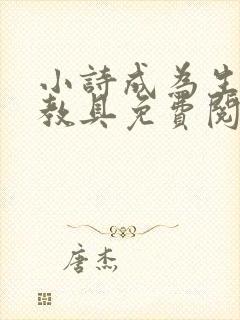 小詩成為生
教具免費閱
唐杰